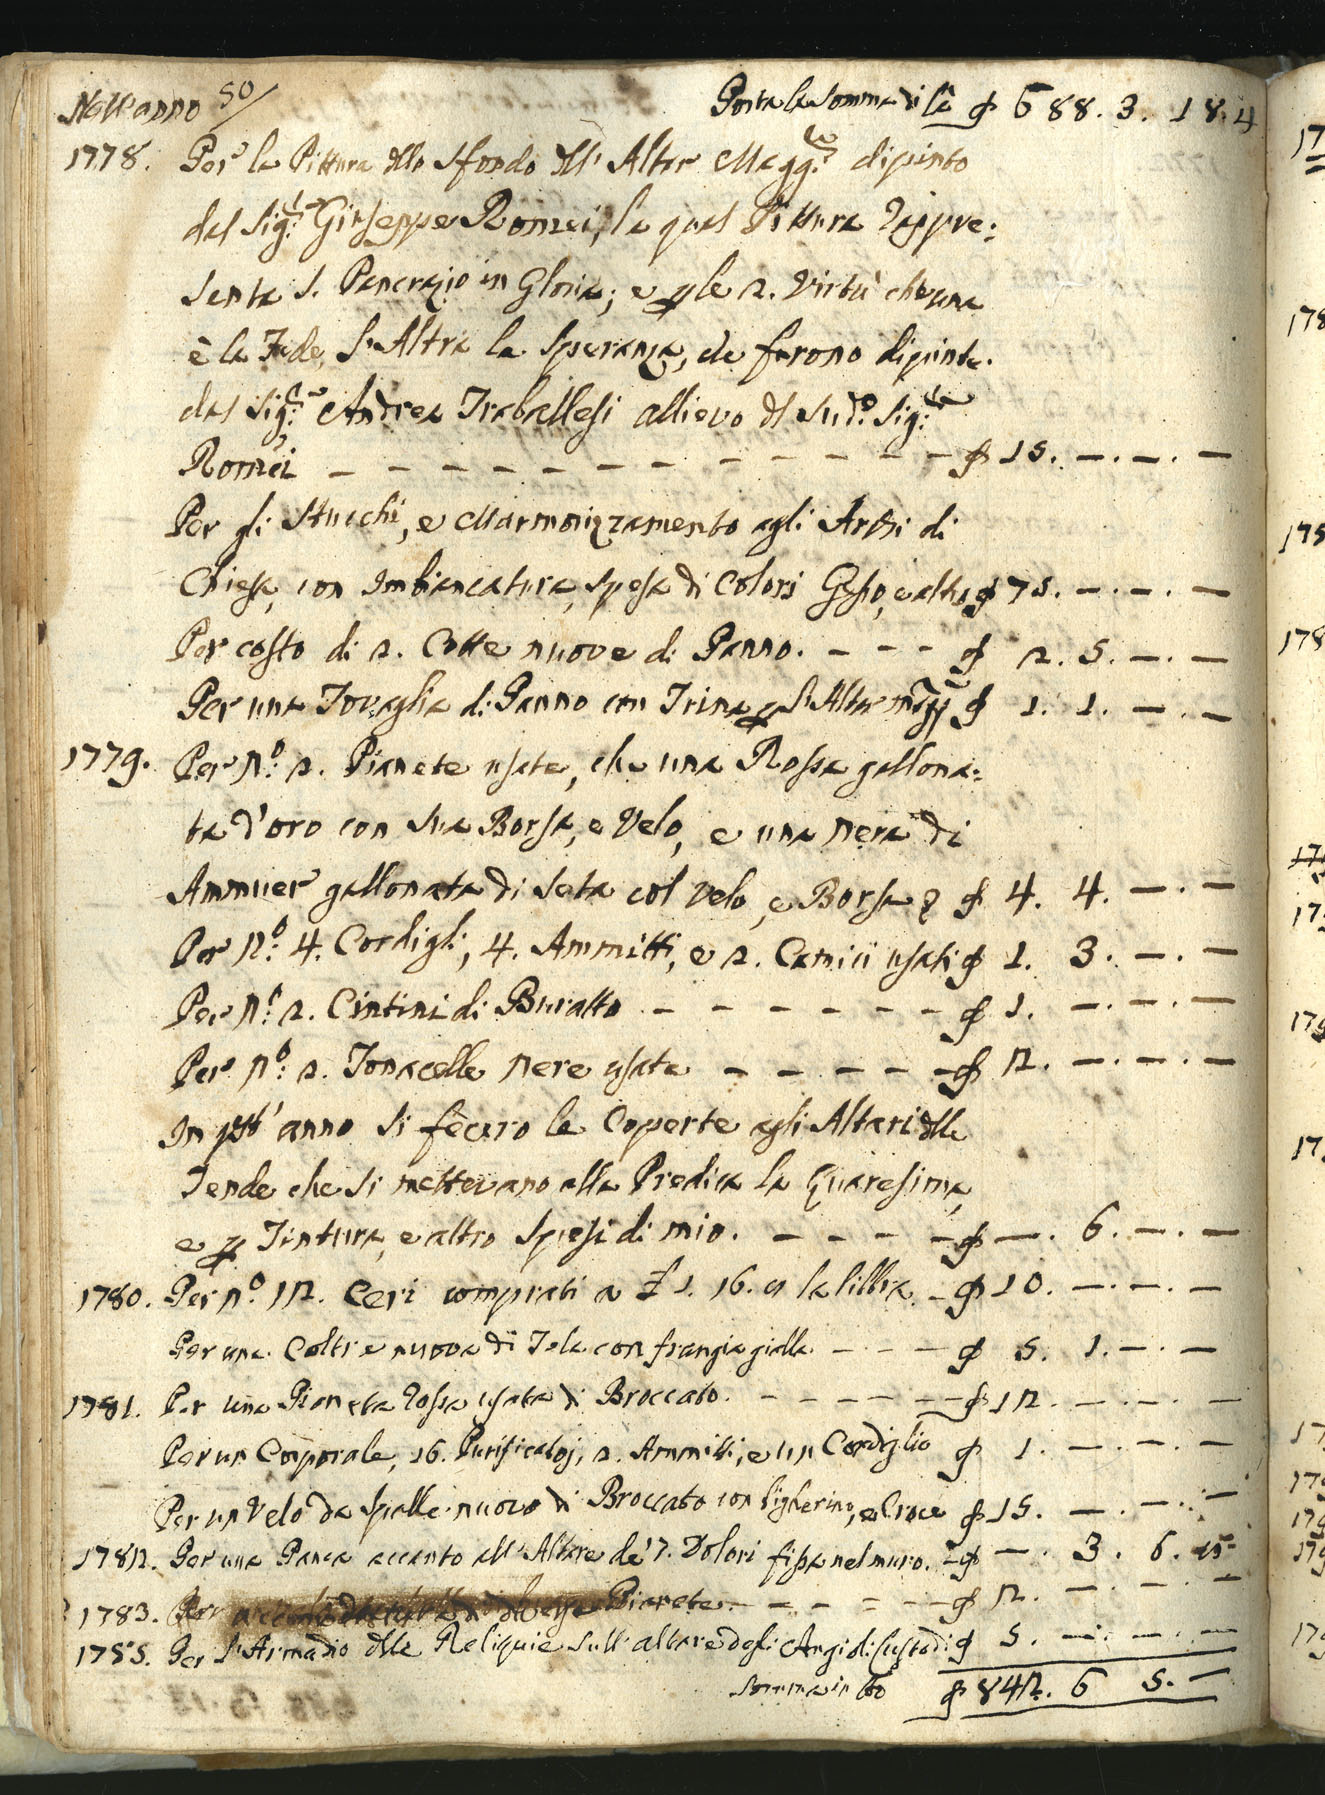 Nell'anno 50/
Porta la somma di là ф 688. 3. 18. 4
1778. Per la Pittura dello sfondo dell' Altar Magg.re dipinto
dal Sig.r Giuseppe Romei, la qual Pittura rappre:
senta S. Pancrazio in Gloria; e p le 2. Virtù che una
è la Fede, l'Altra la Speranza, che furono dipinte
dal Sig.r Andrea Traballesi allievo del sud.o Sig.re
Romei – – – – – – – – – – – – – ф 15. –. –. –
Per gli Stucchi, e Marmorizzamento agli Archi di
Chiesa, con Imbiancatura, spesa di Colori Gesso, e altro ф 75. –. –. –
Per costo di 2. Cotte nuove di Panno. – – – ф 2. 5. –. –
Per una Tovaglia di Panno con Trina p l'Altar magg ф 1. 1. –. –
1779. Per N.o 2. Pianete usate, che una Rossa gallona:
ta d'oro con sua Borsa, e Velo, e una nera di
Ammuer gallonata di Seta col velo, e Borsa ф 4. 4. –. –
Per N.o 4. Cordigli, 4. Ammitti, e 2. Camici usati ф 1. 3. –. –
Per N.o 2. Cintini di Buratto – – – – – – ф 1. –. –. –
Per N.o 2. Tonacelle nere usate – – – – – ф 2. –. –. –
In qst' anno si fecero le Coperte agli Altari delle
Tende che si mettevano alla Predica la Quaresima,
e p Tintura, e altro spesi di mio. – – – – – ф –. 6. –. –
1780. Per N.o 12. Ceri comprati a £ 1. 16. la libbra – ф 10. –. –. –
Per una Coltre nuova di Tela con frangia gialla – – – ф 5. 1. –. –
1781. Per una Pianeta rossa usata di Broccato. – – – – – – ф 12. –. –. –
Per un Corporale, 16. Purificatoj, 2. Ammitti, e un Cordiglio ф 1. –. –. –
Per un Velo da spalle nuovo di Broccato con Pigherino, e Croce ф 15. –. –. –
1782. Per una Panca accanto all' Altare de' 7. Dolori fissa nel muro. – ф –. 3. 6. 8
1783. Per Pianete – – – – – – ф 2. –. –. –
1785. Per l'Armadio delle Reliquie sull' altare degli Angioli Custodi ф 5. –. –. –
Somma in tto ф 842. 6 5. –